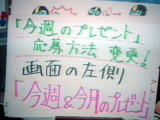 「今週のプレゼント」
応募方法 変更!
画面の左側
「今週&今月のプレゼント」